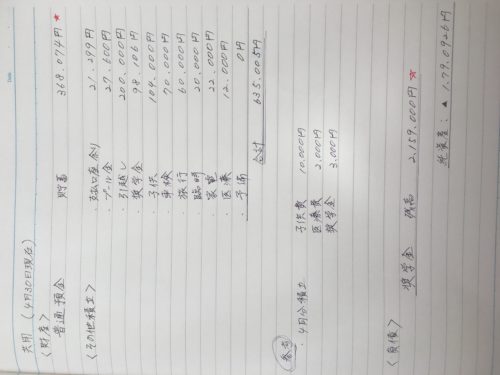 Date
共用 (4月30日現在)
<財産>
普通預金 貯蓄 368.074円 ★
<その他積立>
・支払口座余り 21.299円
・プール金 27.600円
・引越し 200.000円
・奨学金 98.106円
・子供 104.000円
・車検 70.000円
・旅行 60.000円
・臨時 20.000円
・家電 22.000円
・医療 12.000円
・予備 0円
合計 635.005円
参考
・4月分積立 子供費 10.000円
医療費 2.000円
奨学金 3.000円
<負債>
奨学金 残高 2.159.000円 ★
純資産: ▲ 1.79.0926円